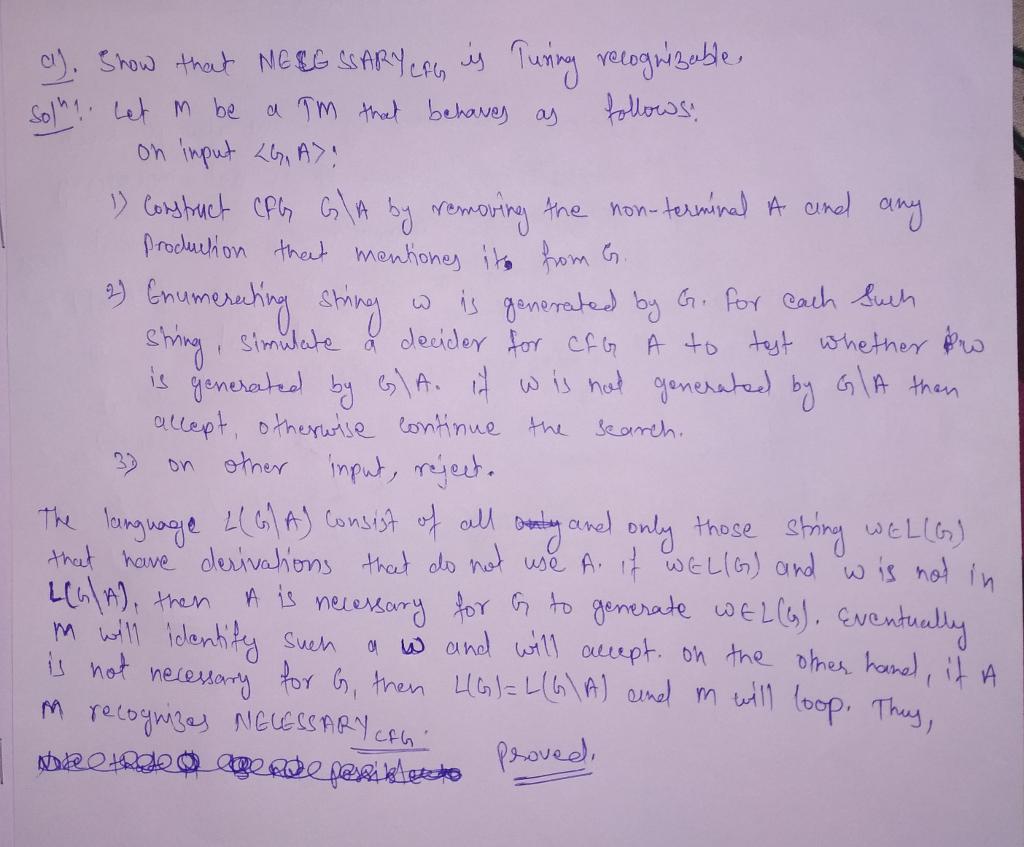 a). Show that NECESSARY CFG is Turing recognizable.
Solⁿ: Let M be a TM that behaves as follows:
on input <G, A>:
1) Construct CFG G\A by removing the non-terminal A and any
Production that mentiones it from G.
2) Enumerating string w is generated by G. for each such
string, simulate a decider for CFG A to test whether w
is generated by G\A. if w is not generated by G\A then
accept, otherwise continue the search.
3) on other input, reject.
The language L(G\A) consist of all and only those string w∈L(G)
that have derivations that do not use A. if w∈L(G) and w is not in
L(G\A), then A is necessary for G to generate w∈L(G). Eventually
M will identify such a w and will accept. on the other hand, if A
is not necessary for G, then L(G)=L(G\A) and M will loop. Thus,
M recognizes NECESSARY CFG.
Proved.